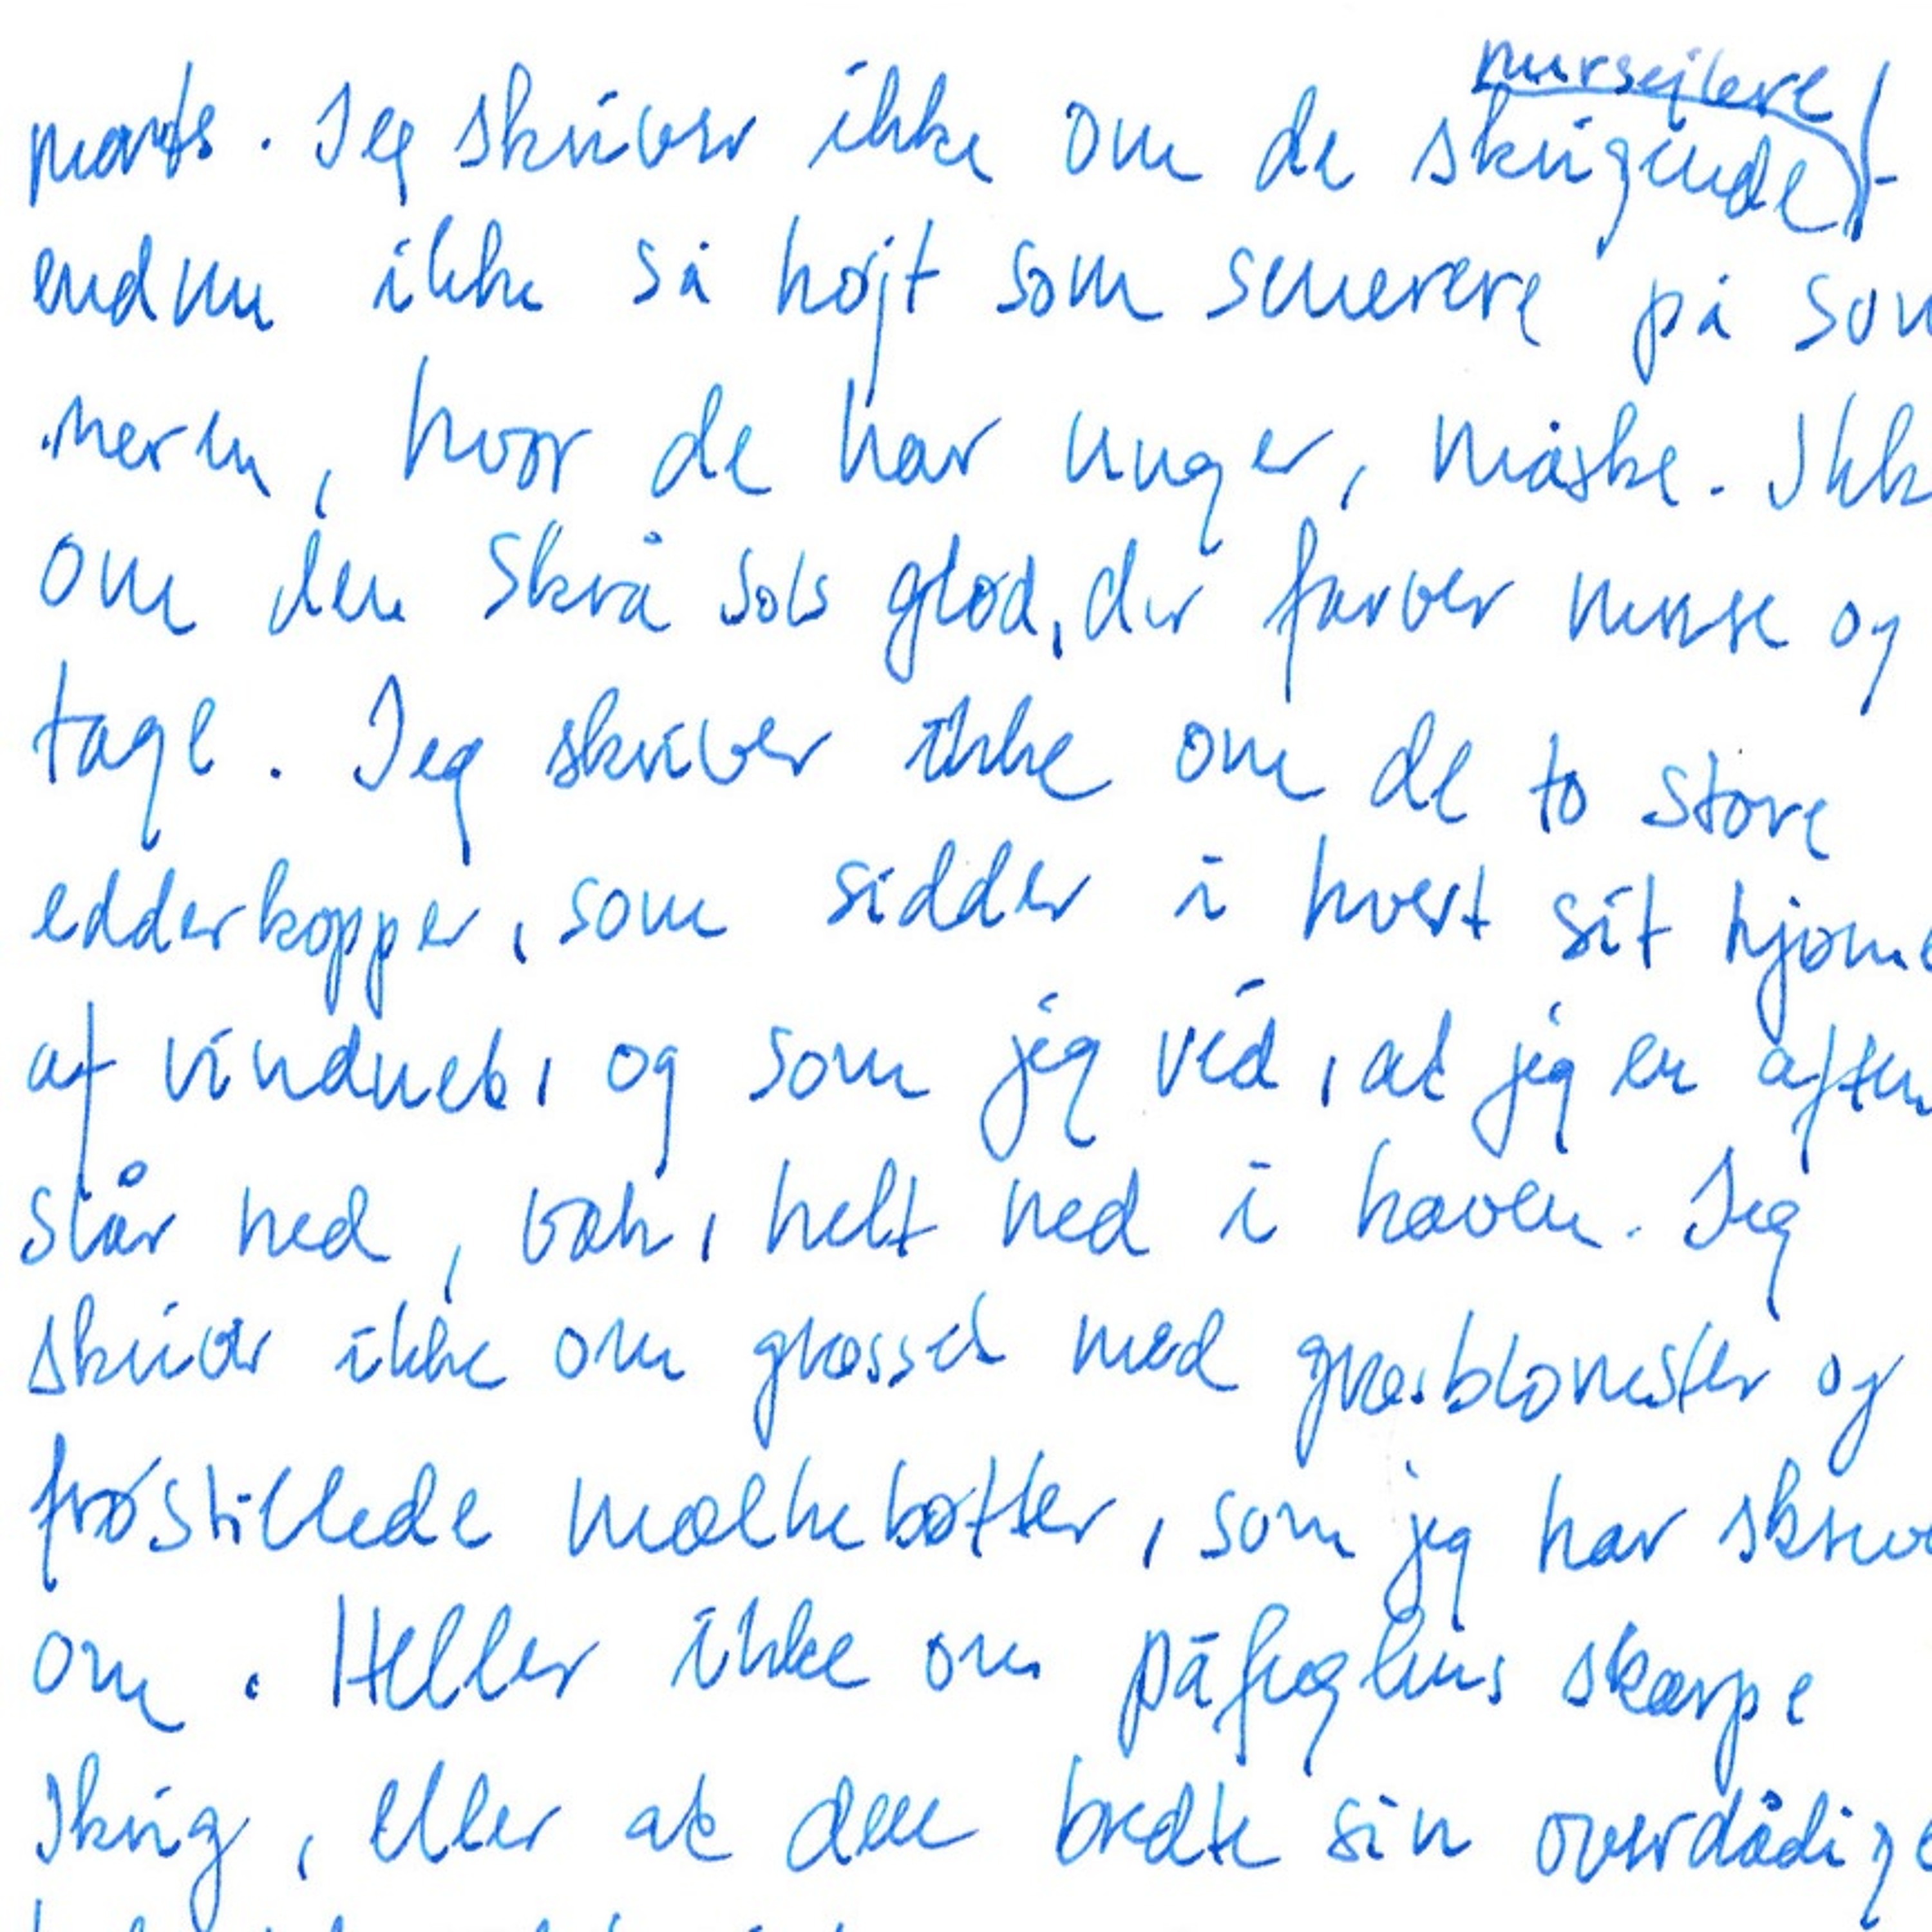 mursejlere
marts. Jeg skriver ikke om de skrigende -
endnu ikke så højt som senerere på som
meren, hvor de har unger, måske. Ikk
om den skrå sols glød, der farver mure og
tage. Jeg skriver ikke om de to store
edderkopper, som sidder i hvert sit hjørne
af vinduet, og som jeg véd, at jeg er aften
slår ned, væk, helt ned i haven. Jeg
skriver ikke om græsset med græsblomster og
frøstillede mælkebøtter, som jeg har skrev
om. Heller ikke om påfuglens skarpe
skrig, eller at den bredte sin overdådige